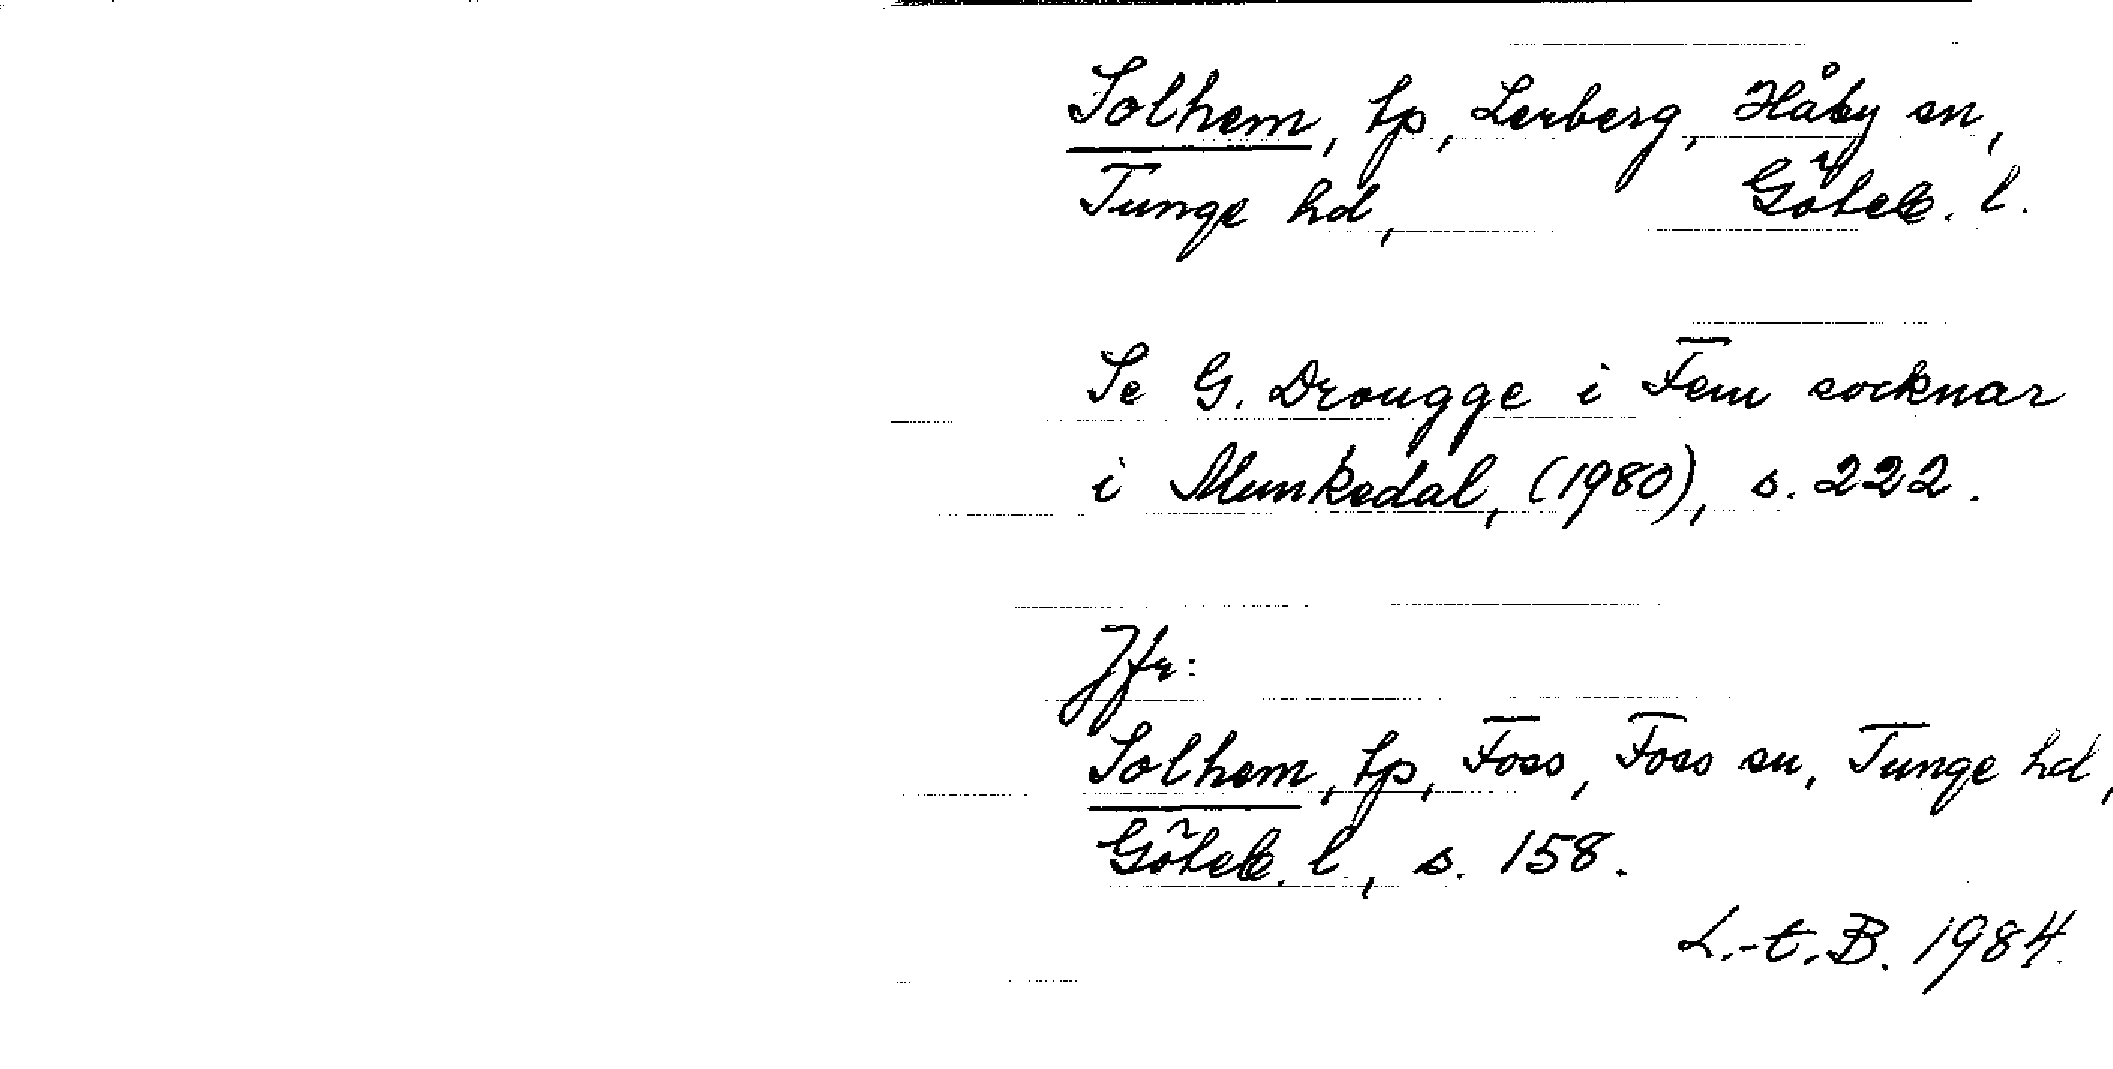 Solhem, tp, Lerberg, Håby sn,
Tunge hd, Göteb. l.
Se G. Drougge i Fem socknar
i Munkedal, (1980), s. 222.
Jfr:
Solhem, tp, Foss, Foss sn, Tunge hd,
Göteb. l, s. 158.
L.-t. B. 1984.